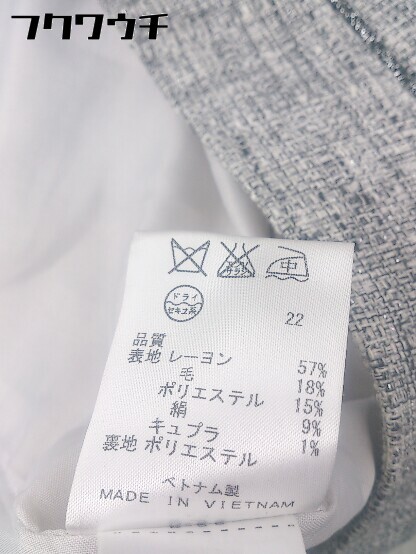 フクワウチ
エンソサラシ
中
ドライ
セキユ系
22
品質
表地 レーヨン 57%
毛 18%
ポリエステル 15%
絹 9%
キュプラ 1%
裏地 ポリエステル
ベトナム製
MADE IN VIETNAM